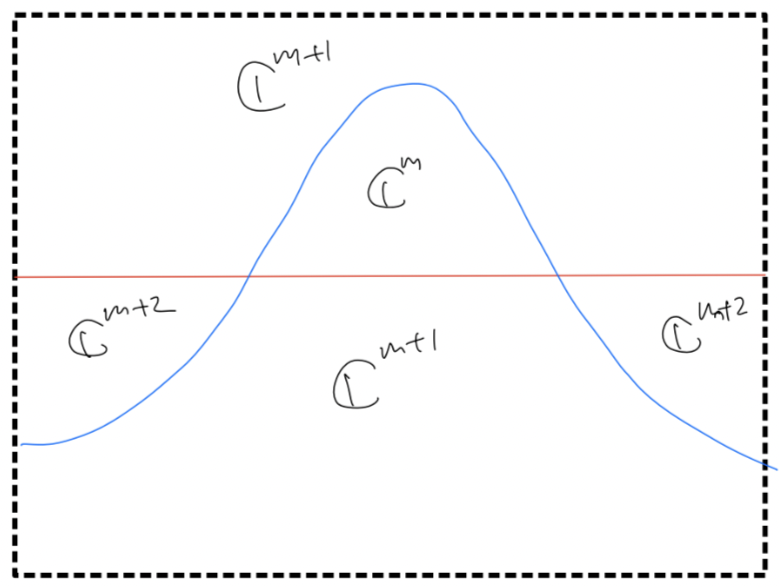 ℂ^{m+1}
ℂ^m
ℂ^{m+2}
ℂ^{m+2}
ℂ^{m+1}